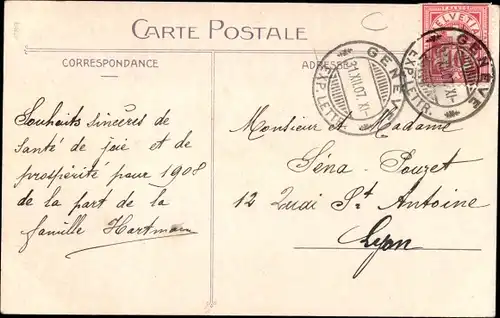 CARTE POSTALE
CORRESPONDANCE
ADRESSE
HELVETIA
FRANCO
GENÈVE
31.XII.07.XI-
EXP. LETTR.
GENÈVE
XI-
EXP. LETTR.
Souhaits sincères de
santé de joie et de
prospérité pour 1908
de la part de la
famille Hartmann
Monsieur et Madame
Séna-Pouzet
12 Quai St Antoine
Lyon